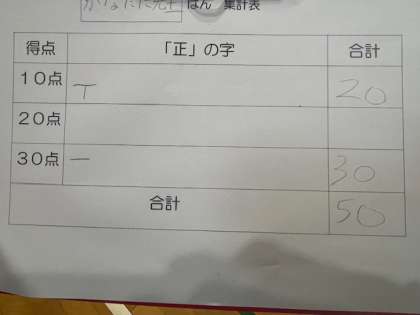 はん 集計表
得点 「正」の字 合計
10点 T 20
20点
30点 一 30
合計 50